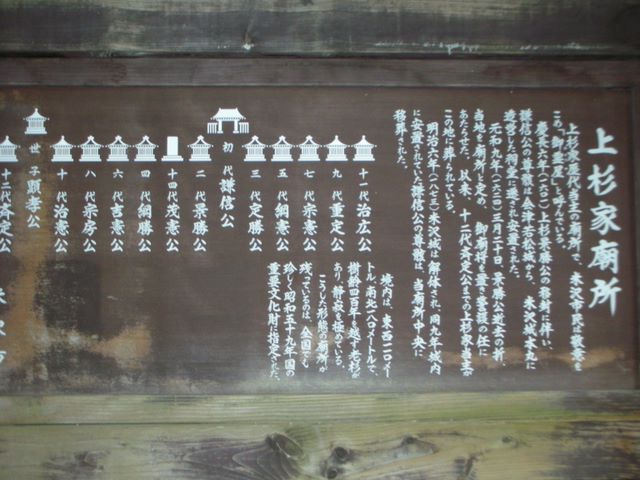 上杉家廟所
上杉家歴代当主の廟所で、米沢市民は敬意を
こめ「御霊屋」と呼んでいる。
慶長六年(一六〇一)上杉景勝公の移封に伴い、
謙信公の尊骸は会津若松城から、米沢城本丸に
造営した祠堂に遷され安置された。
元和九年(一六二三)三月二十日、景勝公逝去の折、
当地を廟所と定め、
あたらせた。以来、十二代斉定公までの上杉家当主が
この地に葬られている。
明治六年(一八七三)米沢城は解体され、同九年城内
に安置されていた謙信公の尊骸は、当廟所中央に
移葬された。
境内は、東西一二〇メー
トル、南北一八〇メートルで、
樹齢四百年を越す老杉が
あり静寂を極めている。
こうした形態の廟所が
残っているのは、全国でも
珍しく昭和五十九年国の
重要文化財に指定された。
十一代治広公
九代重定公
七代宗憲公
五代綱憲公
三代定勝公
初代謙信公
二代景勝公
十四代茂憲公
四代綱勝公
六代吉憲公
八代宗房公
十代治憲公
世子顕孝公
十二代斉定公
米沢市